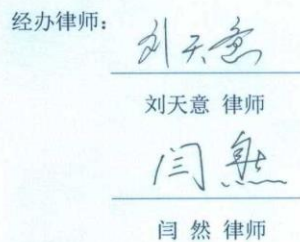 经办律师：
刘天意
刘天意 律师
闫然
闫 然 律师